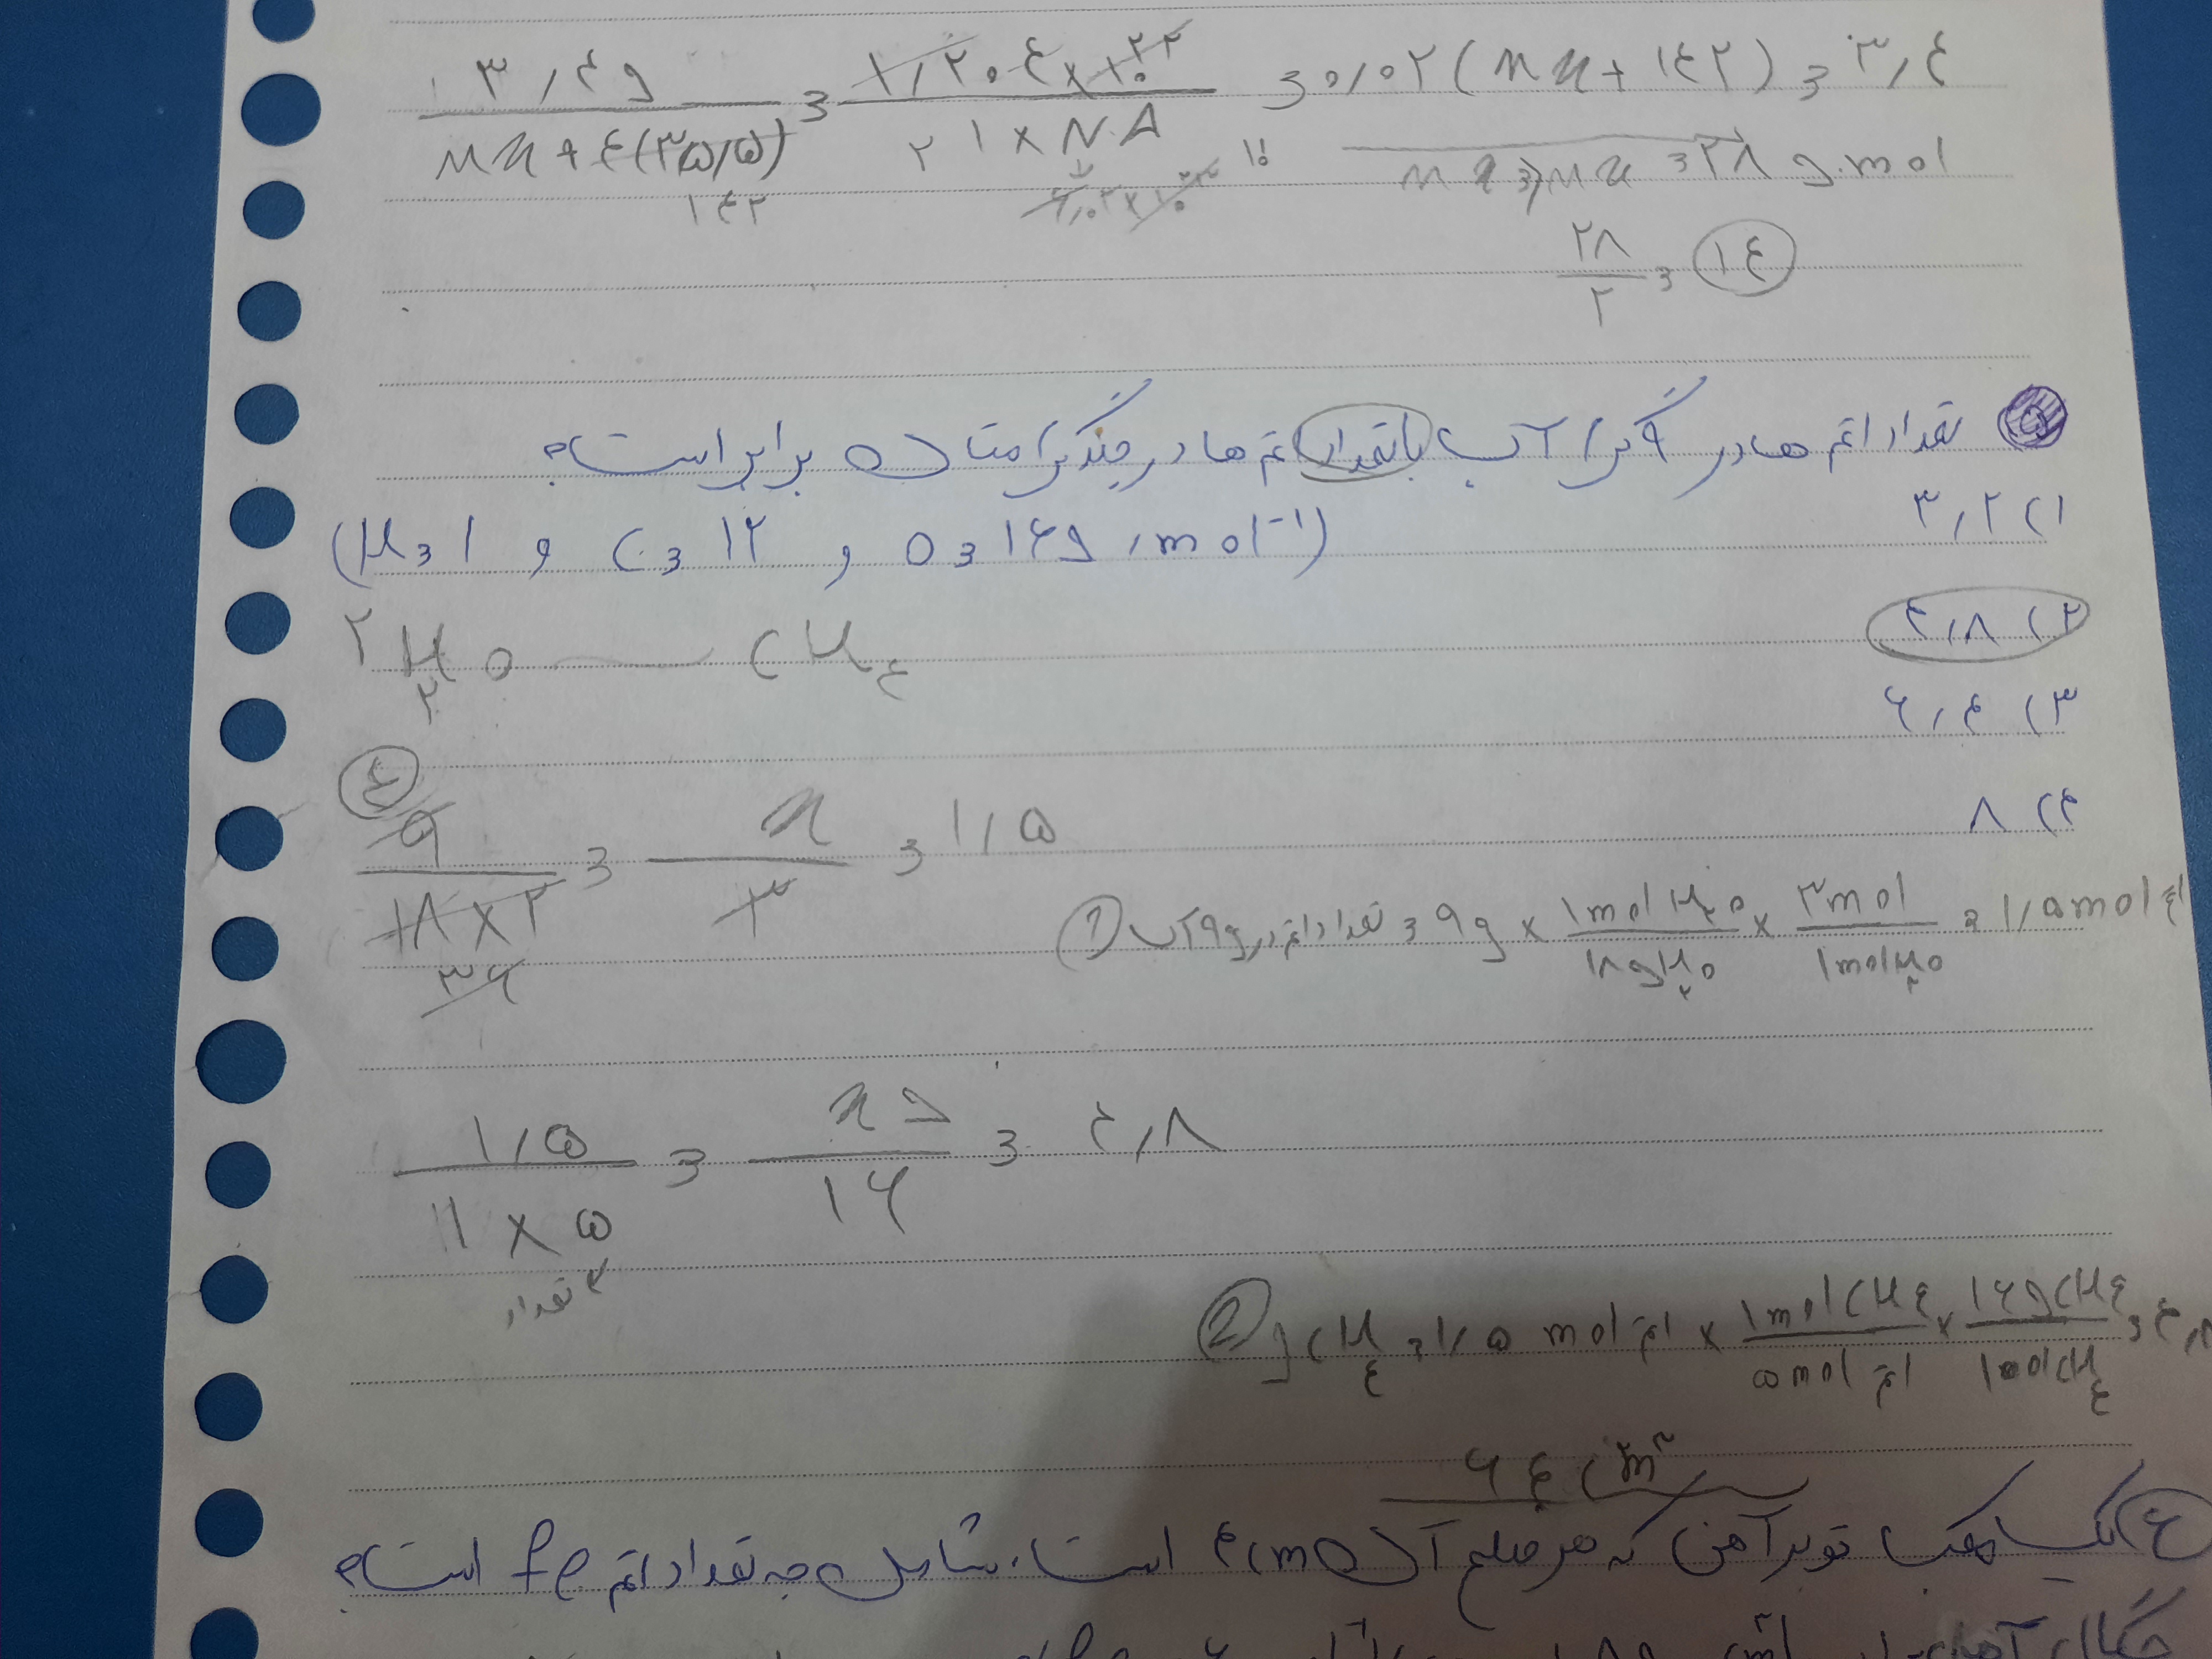 ۳/۴g / Mx + ۴(۳۵/۵) = ۱/۲۰۴×۱۰^۲۲ / ۱×NA = ۰/۰۲(Mx + ۱۴۲) = ۳/۴
۱۴۲ ۶/۰۲×۱۰^۲۳ Mx = ۲۸ g.mol
۲۸/۲ = ۱۴
۵ تعداد اتم ها در ۹ گرم آب با تعداد اتم ها در چند گرم متان برابر است؟
۱) ۳/۲ (H=۱ و C=۱۲ و O=۱۶g/mol^-۱)
۲) ۴/۸
۲H₂O ~ CH₄
۳) ۶/۴
۴) ۸
۹ / ۱۸×۲ = x / ۳ = ۱/۵
۳۶
① تعداد اتم در ۹g آب = ۹g × ۱mol H₂O / ۱۸g H₂O × ۳mol / ۱mol H₂O = ۱/۵ mol اتم
۱/۵ / ۱×۵ = xg / ۱۶ = ۴/۸
تعداد
② g CH₄ = ۱/۵ mol اتم × ۱mol CH₄ / ۵mol اتم × ۱۶g CH₄ / ۱mol CH₄ = ۴/۸
۶۴cm^۳
۶ یک مکعب توپر آهن که هر ضلع آن ۴cm است، شامل چه تعداد اتم fe است؟